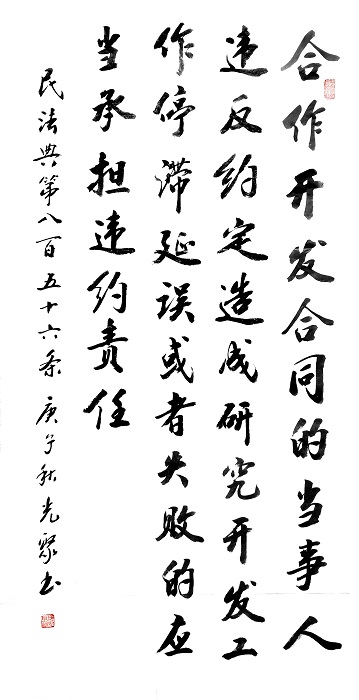 合作开发合同的当事人
违反约定造成研究开发工
作停滞延误或者失败的应
当承担违约责任
民法典第八百五十六条 庚子秋 光聚书